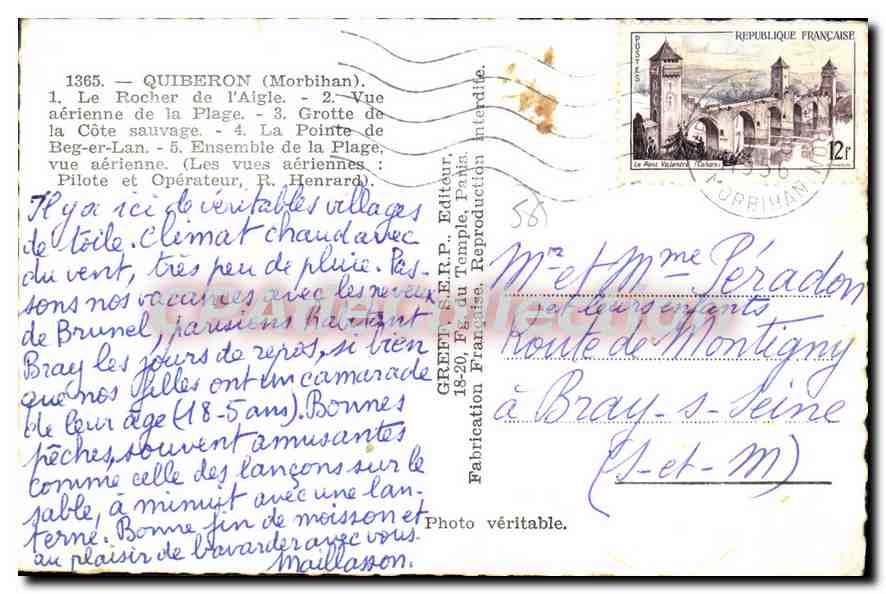 1365. — QUIBERON (Morbihan).
1. Le Rocher de l'Aigle. - 2. Vue
aérienne de la Plage. - 3. Grotte de
la Côte sauvage. - 4. La Pointe de
Beg-er-Lan. - 5. Ensemble de la Plage,
vue aérienne. (Les vues aériennes :
Pilote et Opérateur, R. Henrard).
Il y a ici de véritables villages
de toile. Climat chaud avec
du vent, très peu de pluie. Pas-
sons nos vacances avec les neveux
de Brunel, parisiens habitant
Bray les jours de repos, si bien
que nos filles ont un camarade
de leur âge (18-5 ans). Bonnes
pêches, souvent amusantes
comme celle des lançons sur le
sable, à minuit avec une lan-
terne. Bonne fin de moisson et
au plaisir de bavarder avec vous.
Maillasson.
GREFF, S.E.R.P., Editeur,
18-20, Fg. du Temple, Paris.
Fabrication Française. Reproduction interdite.
Photo véritable.
POSTES
REPUBLIQUE FRANÇAISE
Le Pont Valentré (Cahors)
12f
MORBIHAN
58
Mr et Mme Péradon
et leurs enfants
Route de Montigny
à Bray-s-Seine
(S-et-M)